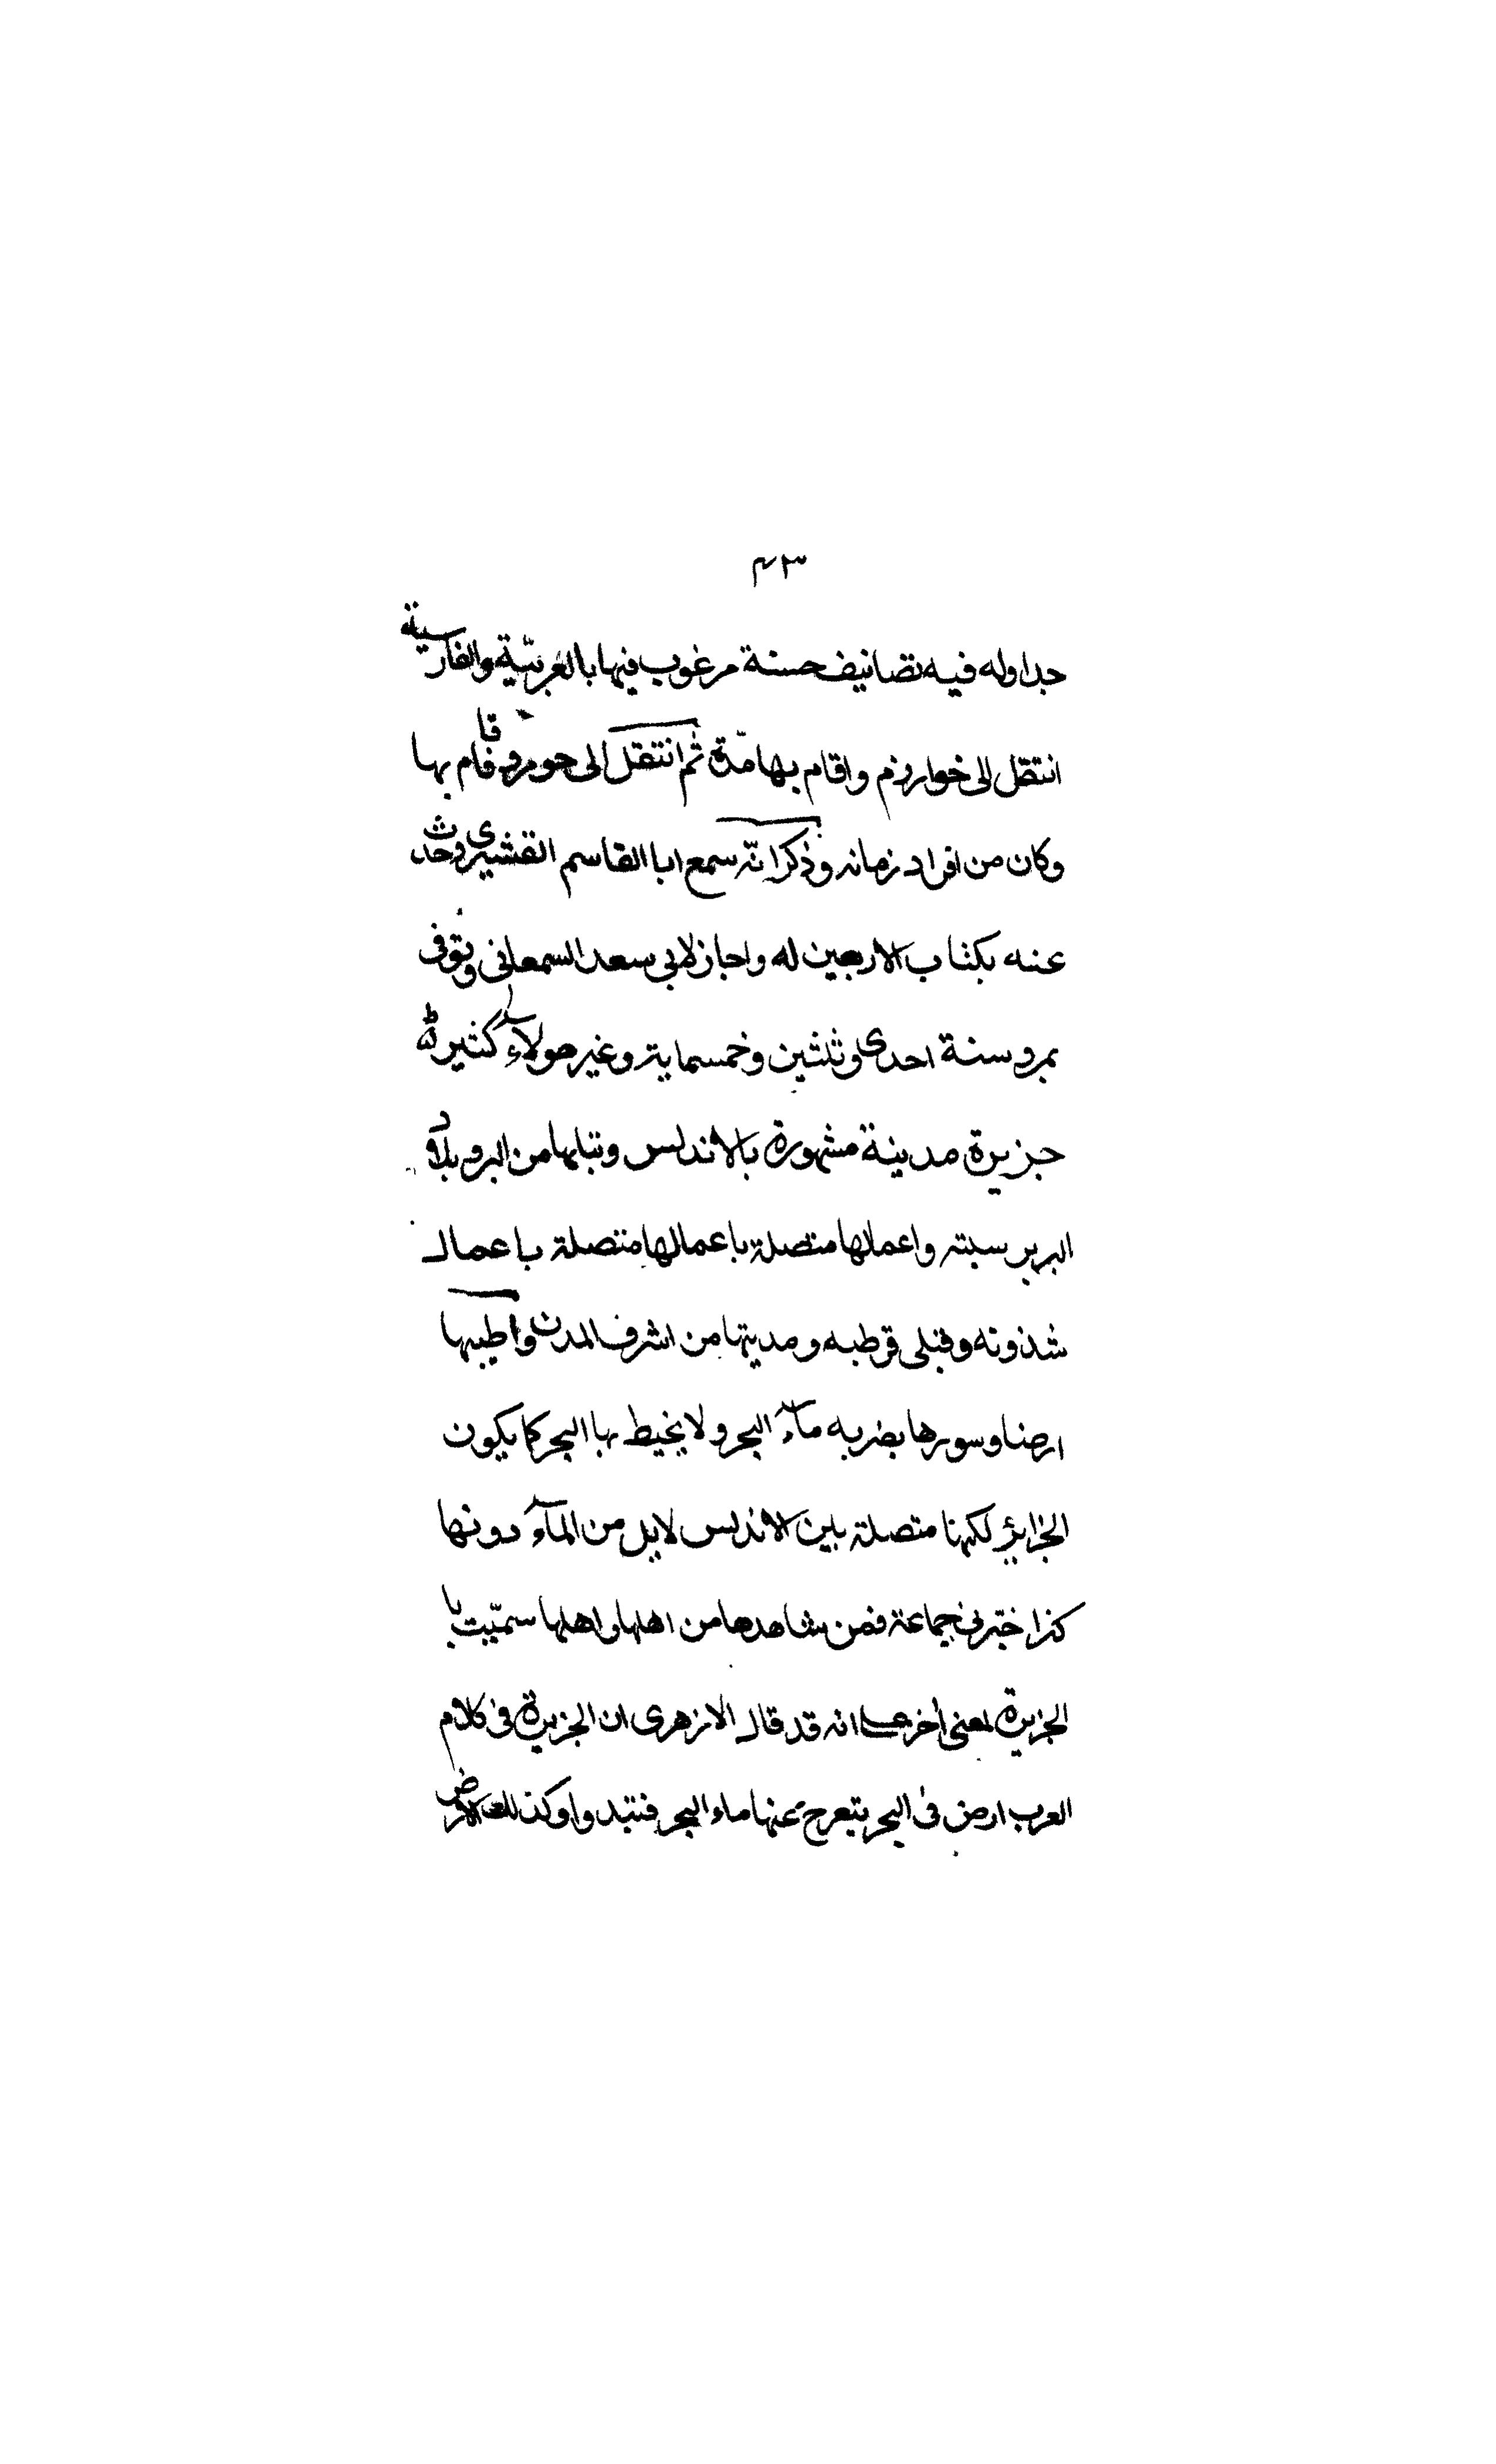 ٤٣
جداوله فيه تصانيف حسنة مرغوب فيها بالعربيّة والفارسية
انتقل الى خوارزم واقام بها مدّة ثم انتقل الى حو مرو فاقام بها
وكان من افراد زمانه وذكر انّه سمع ابا القاسم القشيرى وحدث
عنه بكتاب الاربعين له واجاز لابى سعد السمعانى وتوفى
بمرو سنة احدى وثلثين وخمسماية وغير هولآء كثيرة
جزيرة مدينة مشهورة بالاندلس وتبابها من البر وبلاد
البربر سبته واعمالها متصلة باعمالها متصلة باعمال
شذونه وقبلى قرطبه ومدينتها من اشرف المدن واطيبها
ارضا وسورها يضربه مآء البحر ولا يحيط بها البحر كما يكون
الجزاير لكنها متصلة ببين الاندلس لايل من المآء دونها
كذا خبّرنى جماعة فمن شاهدها من اهلها واهلها سميّت با
الجزيرة لمعنى أخر على انه قد قال الازهرى ان الجزيرة فى كلام
العرب ارض فى البحر يتعرج عنها ماء البحر فتبدوا وكذلك الارض